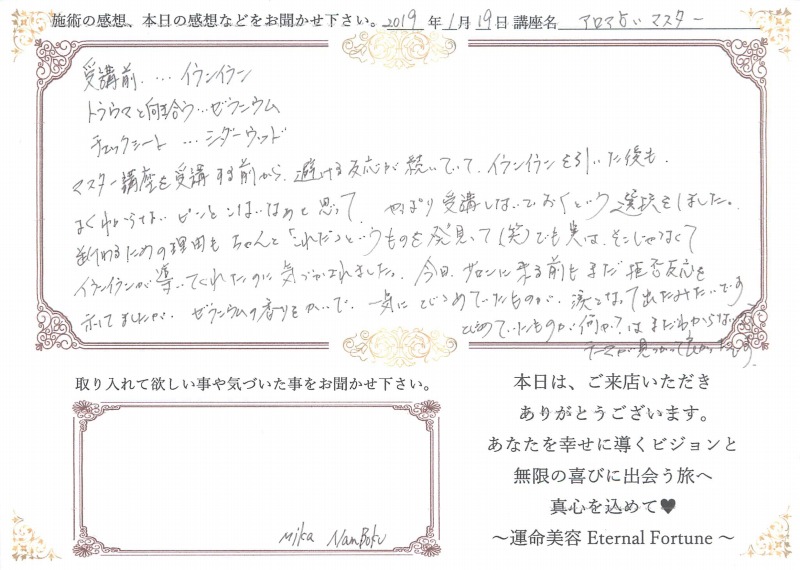 施術の感想、本日の感想などをお聞かせ下さい。2019年1月19日 講座名 アロマ占い マスター
受講前 … イランイラン
トラウマと向き合う … ゼラニウム
チェックシート … シダーウッド
マスター講座を受講する前から、避ける反応が続いていて、イランイランを引いた後も
よくわからない ピンとこないなあと思って やっぱり受講しないでおくという選択をしました。
断わるための理由も ちゃんと「これだ」というものを発見して(笑)でも実は、そこじゃなくて
イランイランが導いてくれたのに気づかされました。今日、サロンに来る前もまだ拒否反応を
示してましたが、ゼラニウムの香りをかいで、一気に とじこめていたものが、涙となって出たみたいです
とじこめていたものが何か?は まだわからない
テーマが見つかって良かったです。
取り入れて欲しい事や気づいた事をお聞かせ下さい。
Mika NanBoku
本日は、ご来店いただき
ありがとうございます。
あなたを幸せに導くビジョンと
無限の喜びに出会う旅へ
真心を込めて♥
〜運命美容 Eternal Fortune 〜